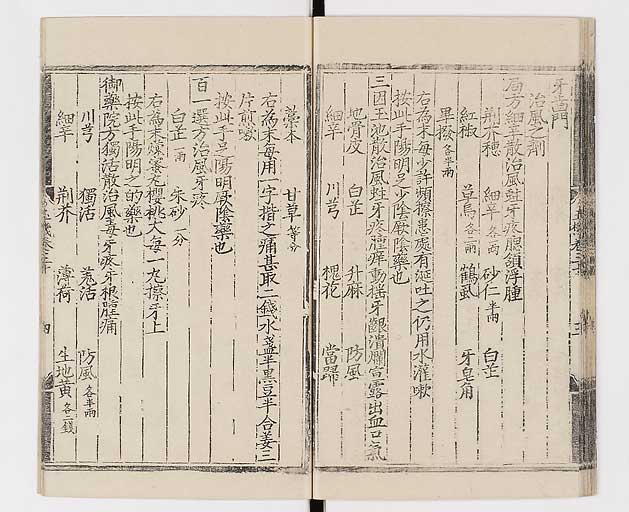 牙齒門
治風之劑
局方細辛散治風蛀牙疼腮頷浮腫
荆芥穗 細辛各一兩 砂仁半兩 白芷
紅椒 草烏各二兩 鶴虱 牙皂角
蓽撥各半兩
右為末每少許頻擦患處有涎吐之仍用水灌嗽
按此手陽明足少陰厥陰藥也
三因玉池散治風蛀牙疼腫痒動搖牙齦潰爛宣露出血口氣
地骨皮 白芷 升麻 防風
細辛 川芎 槐花 當歸
藁本 甘草等分
右為末每用一字揩之痛甚取二錢水盞半黒豆半合姜三
片煎嗽
按此手足陽明厥陰藥也
百一選方治風牙疼
白芷一兩 朱砂一分
右為末煉蜜丸櫻桃大每一丸擦牙上
按此手陽明之的藥也
御藥院方獨活散治風毒牙疼牙根腫痛
川芎 獨活 羌活 防風各半兩
細辛 荆芥 薄荷 生地黃各二錢